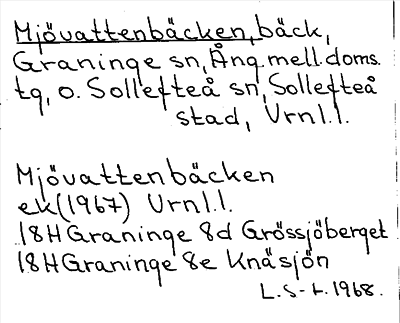 Mjövattenbäcken, bäck,
Graninge sn, Ång. mell. doms.
tg, o. Sollefteå sn, Sollefteå
stad, Vrnl.l.
Mjövattenbäcken
ek (1967) Vrnl.l.
18H Graninge 8d Grössjöberget
18H Graninge 8e Knäsjön
L.S-t. 1968.